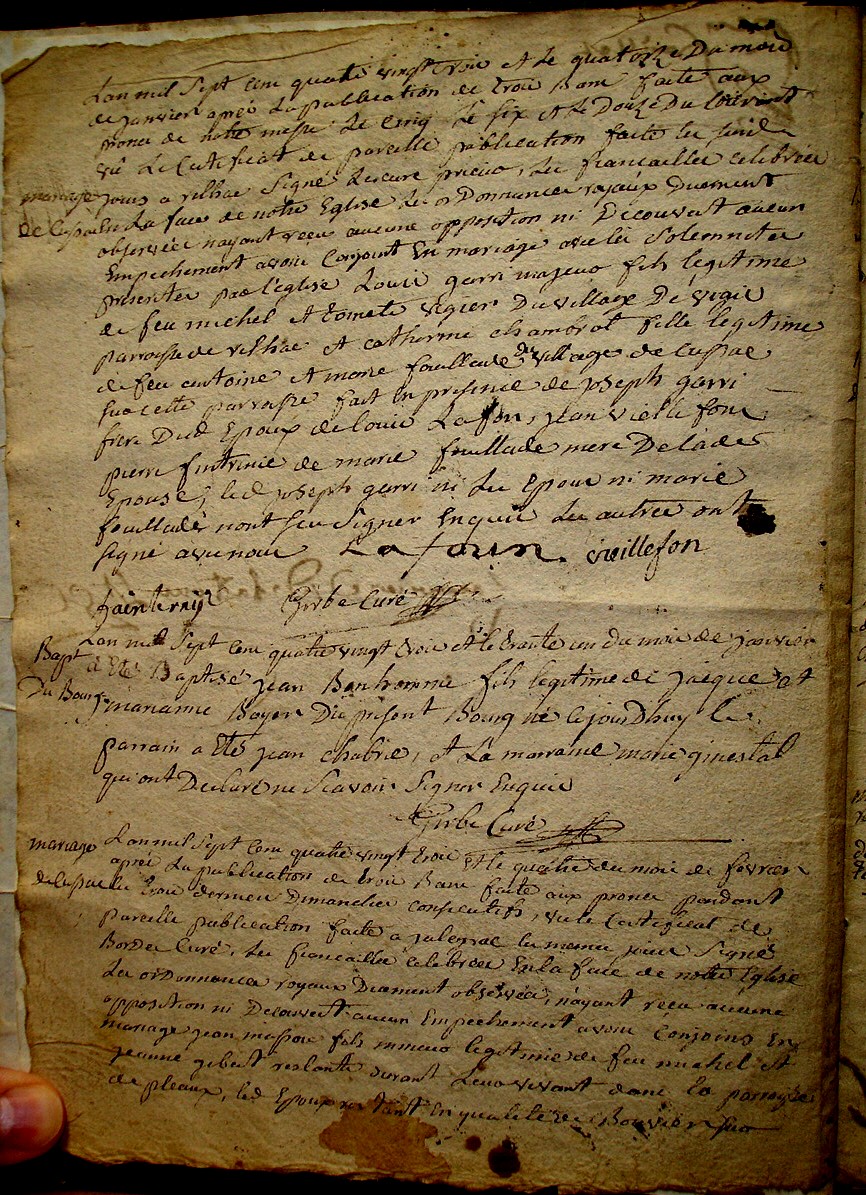 Lan mil Sept Cens quatre vingt trois et le quatorze Du mois
de janvier aprés La publication de trois Bans faite aux
prones de notre messe Le cinq Le six et le Douze Du Courant
vû Le Certificat de pareille publication faite les suds
mariage
jours a rilhac Signé Lescure prieur, Les fiancailles celebrées
de Cussac
En La face de notre Eglise Les ordonnances royaux Duement
observées nayant reçu aucune opposition ni Decouvert aucun
Empechement avons Conjoint En mariage avec les Solemnités
prescrites par l'église Louis garri majeur fils legitime
de feu michel et tomete vigier Du village De vigie
parroisse de rilhac et catherine chambrot fille legitime
de feu antoine et marie fouillade du village de Cussac
Sur cette parroisse fait En presence de joseph garri
frere Dud Epoux de louis Lafon, jean vieillefont
pierre de marie fouillade mere De lade
Epouse, led joseph garri ni Les Epoux ni marie
fouillade nont sçu Signer Enquis Les autres ont
Signé avec nous Lafoun vieillefon
Gerbe Curé
Bapt
Lan mil Sept Cens quatre vingt trois et le trante un du mois de janvier
Du Bourg
a Eté Baptisé jean Bonhomme fils legitime de jacques et
marianne Boyer Du présent Bourg né cejourdhuy le
parrain a Eté jean chabrie, et La marraine marie ginestal
qui ont Declaré ne Scavoir Signer Enquis
Gerbe Curé
mariage
Lan mil Sept Cens quatre vingt trois et le quatre du mois de fevrier
aprés La publication de trois Bans faite aux prones pandant
de Cussac
les trois derniers Dimanches consecutifs, vu le Certificat de
pareille publication faite a jaleyrac les memes jours Signé
Bordes Curé, Les fiancailles celebrées En la face de notre Eglise
Les ordonnances royaux Duement observées, n'ayant reçu aucune
opposition ni Decouvert aucun Empechement avons Conjoins En
mariage jean massou fils mineur legitime de feu michel et
jeanne gibert restants durant Leur vivant dans la parroisse
de pleaux, led Epoux restant En qualité de Bouvier Sur